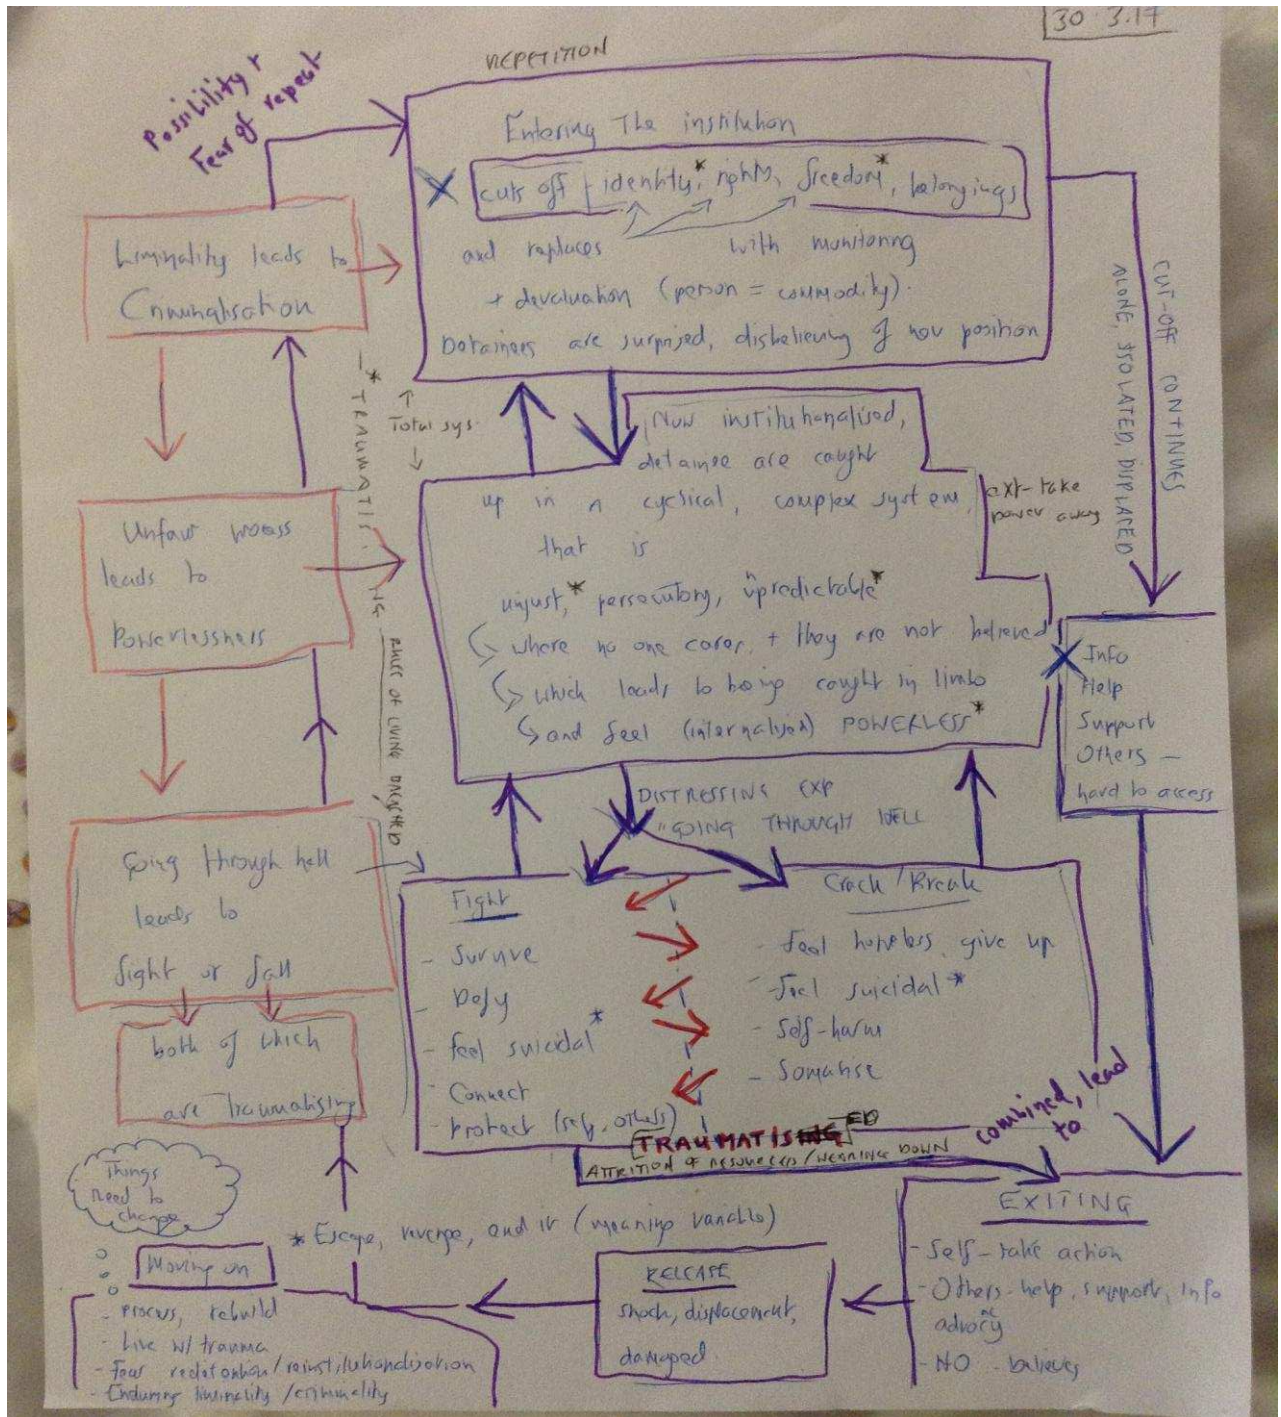 30.3.17
REPETITION
Possibility +
Fear of repeat
Entering The institution
cuts off identity,* rights, freedom*, belongings
and replaces with monitoring
+ devaluation (person = commodity).
Detainees are surprised, disbelieving of new position
Liminality leads to
Criminalisation
CUT-OFF CONTINUES
ALONE, ISOLATED, DISPLACED
* TRAUMATISING
RULES OF LIVING BREACHED
Total sys.
Now institutionalised,
detainee are caught
up in a cyclical, complex system,
that is
unjust,* persecutory, unpredictable*
where no one cares, + they are not believed
which leads to being caught in limbo
and feel (internalised) POWERLESS*
ext-take
power away
Unfair process
leads to
Powerlessness
Info
Help
Support
Others –
hard to access
DISTRESSING EXP
"GOING THROUGH HELL
Going through hell
leads to
fight or fall
both of which
are traumatising
Fight
- Survive
- Defy
- feel suicidal*
- Connect
- Protect (self, others)
Crack/Break
- feel hopeless, give up
- feel suicidal*
- Self-harm
- Somatise
TRAUMATISING ED
ATTRITION OF RESOURCES/WEARING DOWN
combined, lead
to
Things
need to
change
* Escape, revenge, end it (meaning variable)
EXITING
- Self-take action
- Others-help, support, info
- NO - believes
RELEASE
shock, displacement,
damaged
Moving on
- Process, rebuild
- Live w/ trauma
- Fear redetention/reinstitutionalisation
- Enduring liminality/criminality